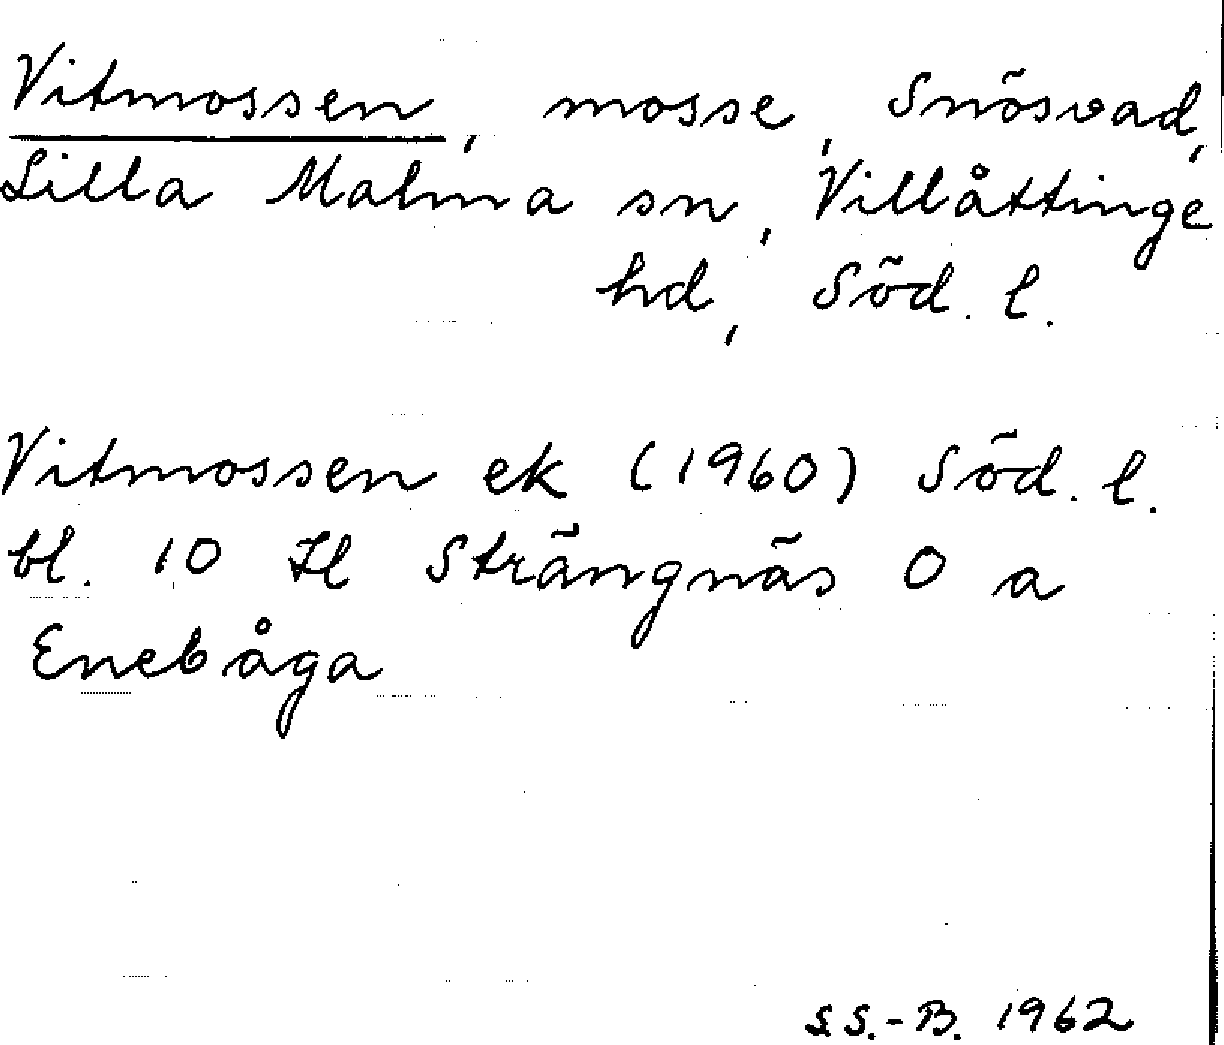 Vitmossen, mosse, Snösvad,
Lilla Malma sn, Villåttinge
hd, Söd. l.
Vitmossen ek (1960) Söd. l.
bl. 10 H Strängnäs O a
Enebåga
S.S.-B. 1962